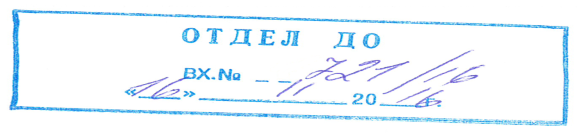 ОТДЕЛ ДО
ВХ.№ 721/16
«16» 11 2016